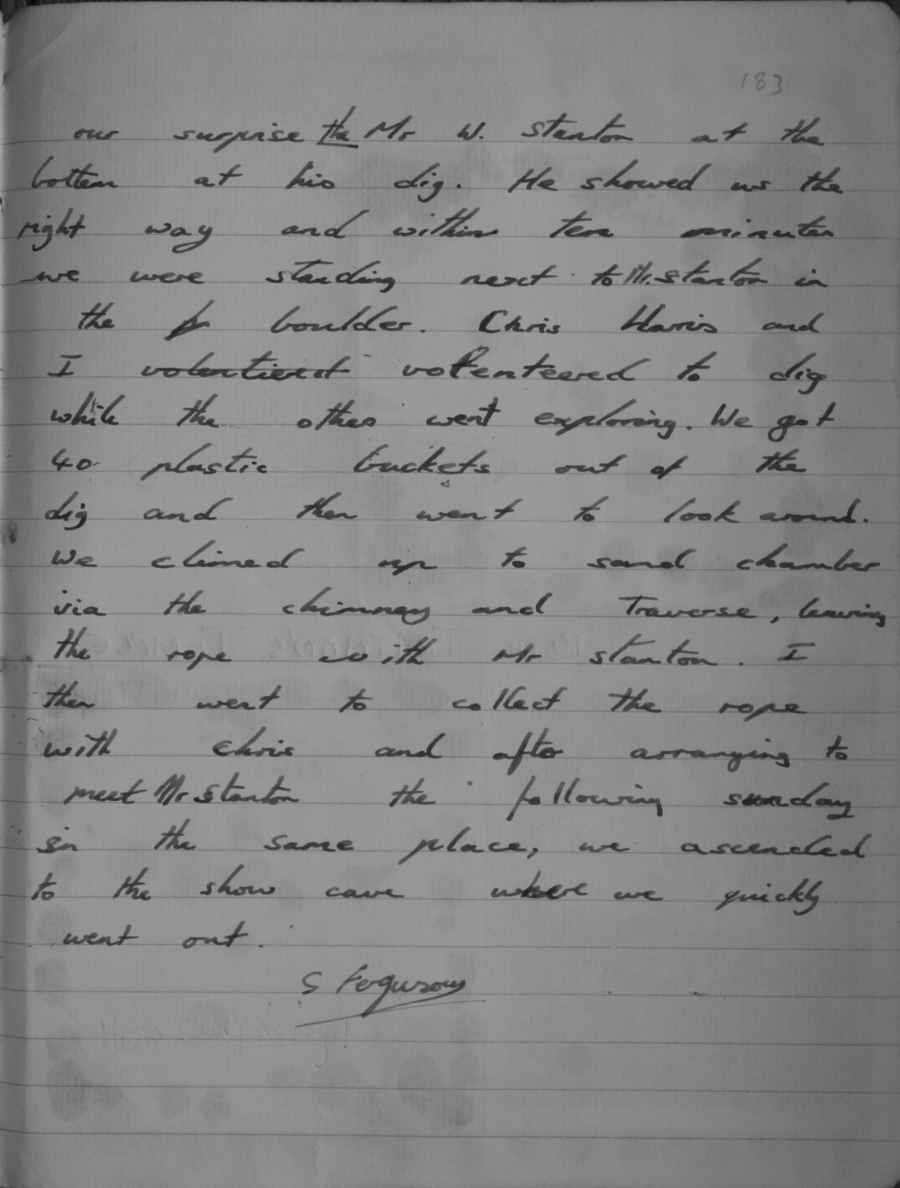 183
our surprise the Mr W. Stanton at the
bottem at his dig. He showed us the
right way and within ten minutes
we were standing next to Mr. Stanton in
the boulder. Chris Harris and
I volentierd volenteered to dig
while the others went exploring. We got
40 plastic buckets out of the
dig and then went to look around.
We climed up to sand chamber
via the chimney and Traverse, leaving
the rope with Mr Stanton. I
then went to collect the rope
with Chris and after arranging to
meet Mr Stanton the following sunday
in the same place, we ascended
to the show cave where we quickly
went out.
S Ferguson